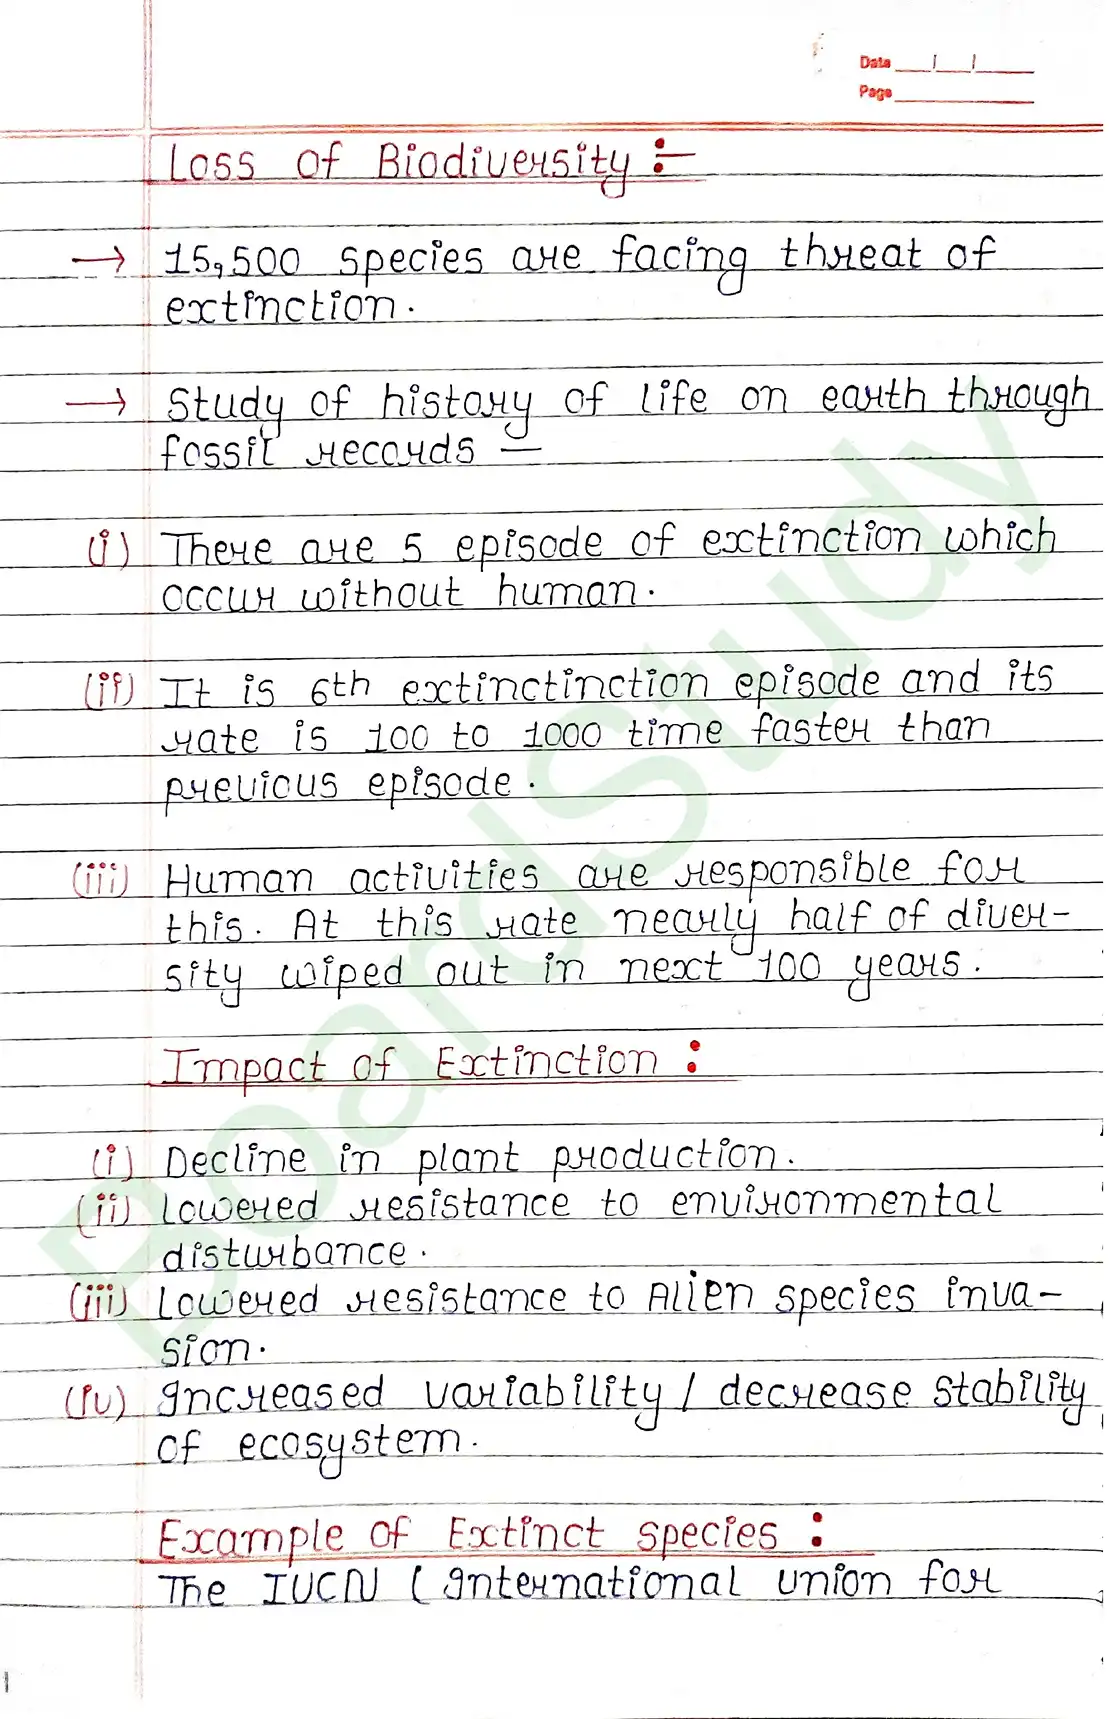 Date __/__/____
Page ________
Loss of Biodiversity :-
→ 15,500 species are facing threat of
extinction.
→ Study of history of life on earth through
fossil records –
(i) There are 5 episode of extinction which
occur without human.
(ii) It is 6th extinctinction episode and its
rate is 100 to 1000 time faster than
previous episode.
(iii) Human activities are responsible for
this. At this rate nearly half of diver-
sity wiped out in next 100 years.
Impact of Extinction :
(i) Decline in plant production.
(ii) Lowered resistance to environmental
disturbance.
(iii) Lowered resistance to Alien species inva-
sion.
(iv) Increased variability / decrease stability
of ecosystem.
Example of Extinct species :
The IUCN ( International union for
BoardStudy